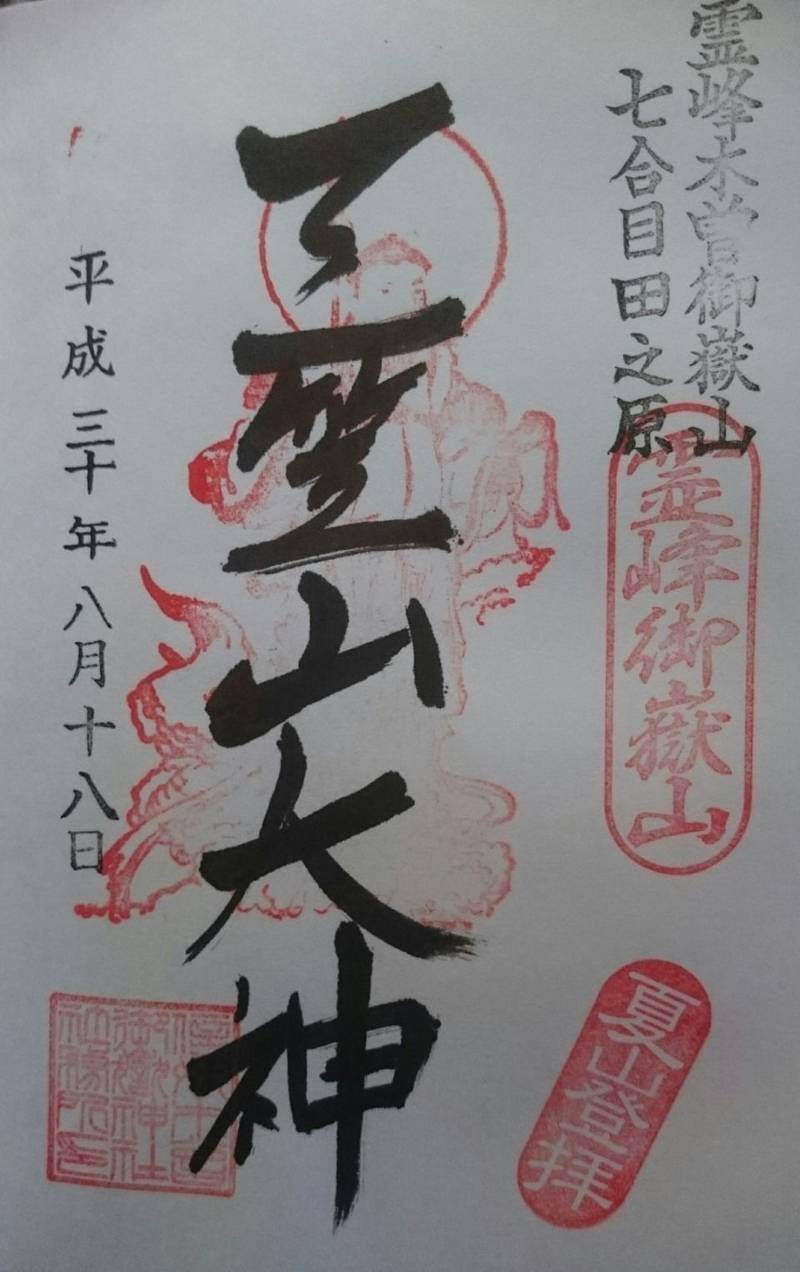 霊峰木曽御嶽山
七合目田之原
霊峰御嶽山
夏山登拝
三笠山大神
平成三十年八月十八日
御嶽神社
社務所印